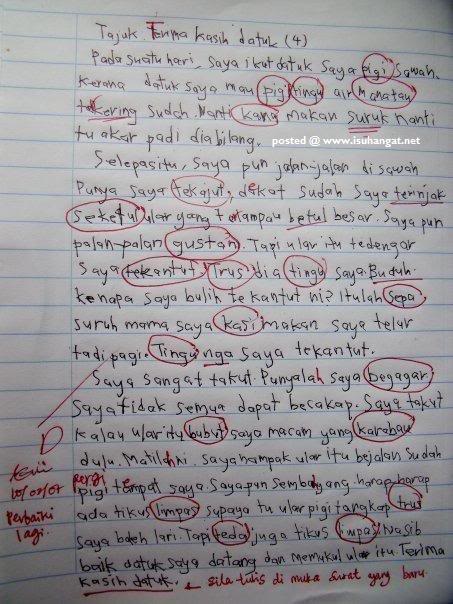 Tajuk Terima kasih datuk (4)
Pada suatu hari, saya ikut datuk saya pigi sawah.
kerana datuk saya mau pigi tingu air manatau
tekering sudah. Nanti kana makan suruk nanti
tu akar padi dia bilang.
posted @ www.isuhangat.net
Selepas itu, saya pun jalan-jalan di sawah
Punya saya tekajut, dekat sudah saya terinjak
seketul ular yang telampau betul besar. Saya pun
palan-palan gustan. Tapi ular itu tedengar
saya tekantut. Trus dia tingu saya. Buduh
kenapa saya bulih tekantut ni? Itulah sepa
suruh mama saya kasi makan saya telur
tadi pagi. Tingu nga saya tekantut.
Saya sangat takut. Punyalah saya begagar
Saya tidak semua dapat becakap. Saya takut
kalau ular itu bubut saya macam yang karabau
dulu. Matilah ni. Saya nampak ular itu bejalan sudah
pergi
pigi tempat saya. Saya pun sembahyang harap-harap
ada tikus limpas supaya tu ular pigi tangkap trus
saya boleh lari. Tapi teda juga tikus limpas. Nasib
baik datuk saya datang dan memukul ular itu. Terima
kasih datuk. ← sila tulis di muka surat yang baru.
D
10/03/07
Perbaiki
lagi.